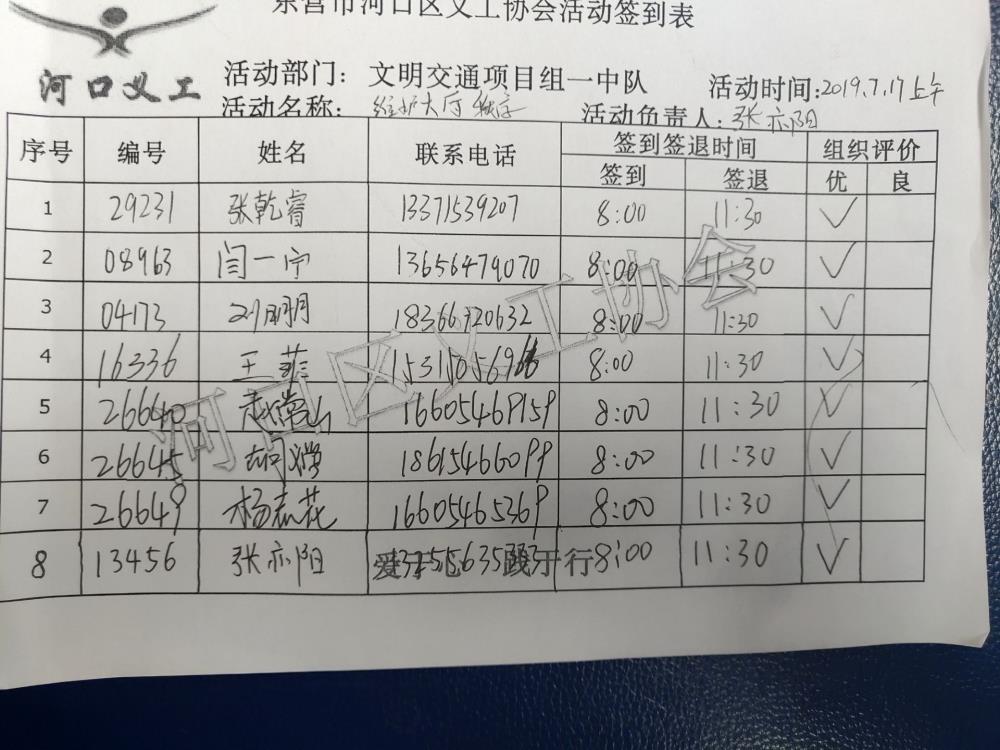 东营市河口区义工协会活动签到表
河口义工
活动部门: 文明交通项目组一中队 活动时间:2019.7.17上午
活动名称: 维护大厅秩序 活动负责人:张亦阳
序号 编号 姓名 联系电话 签到签退时间 组织评价
签到 签退 优 良
1 29231 张乾睿 13371539207 8:00 11:30 ✓
2 08963 闫一宁 13656479070 8:00 11:30 ✓
3 04173 刘明月 18366920632 8:00 11:30 ✓
4 16336 王菲 8:00 11:30 ✓
5 26640 赵常山 16605469159 8:00 11:30 ✓
6 26645 8:00 11:30 ✓
7 26649 杨志花 16605465369 8:00 11:30 ✓
8 13456 张亦阳 8:00 11:30 ✓
河口区义工协会